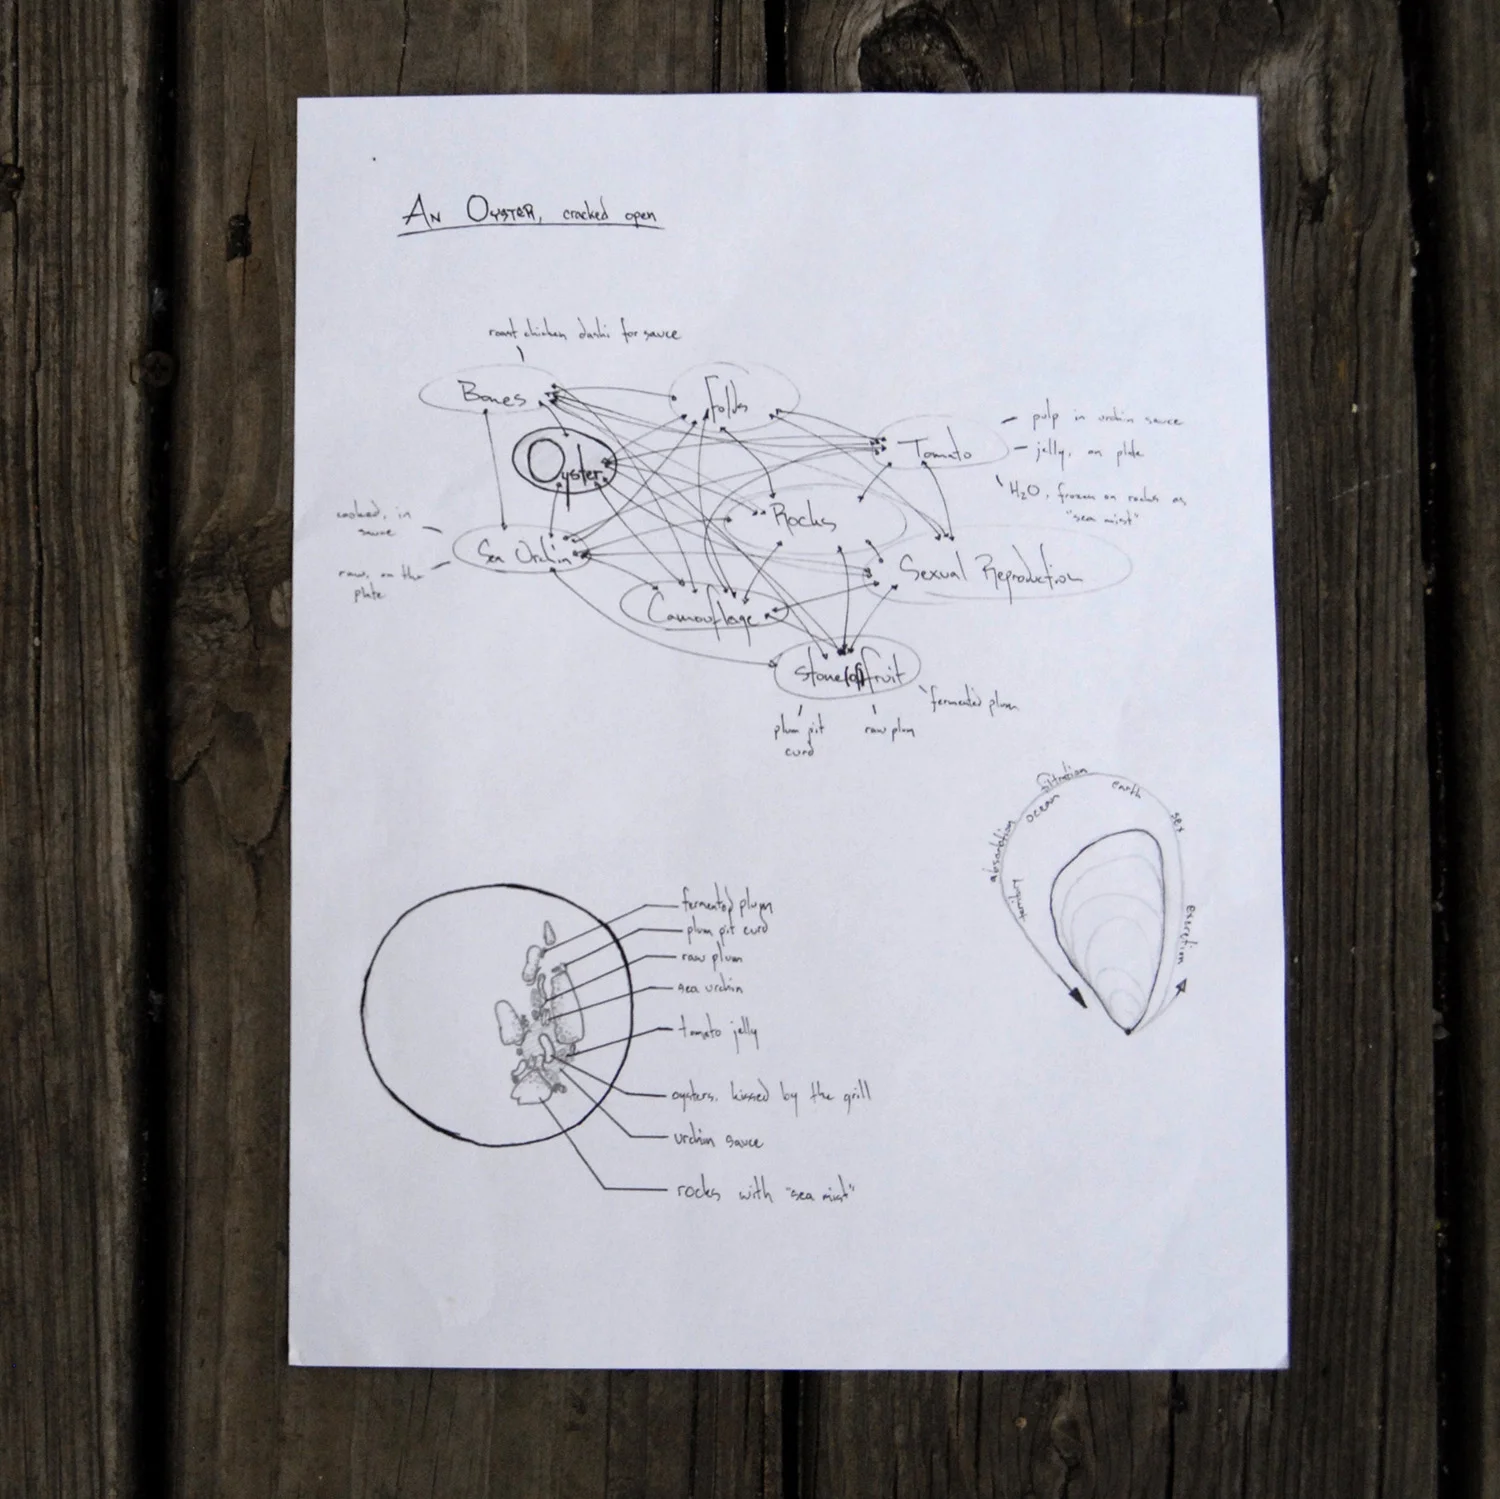 An Oyster, cracked open
roast chicken dashi for sauce
Bones
Folds
Oyster
Tomato
pulp in urchin sauce
jelly, on plate
H2O, frozen on rocks as
"sea mist"
cooked, in
sauce
Sea Urchin
raw, on the
plate
Rocks
Sexual Reproduction
Camouflage
Stone(of)fruit
fermented plum
plum pit
curd
raw plum
filtration
ocean
earth
sex
absorbtion
liquid
excretion
fermented plum
plum pit curd
raw plum
sea urchin
tomato jelly
oysters, kissed by the grill
urchin sauce
rocks with "sea mist"